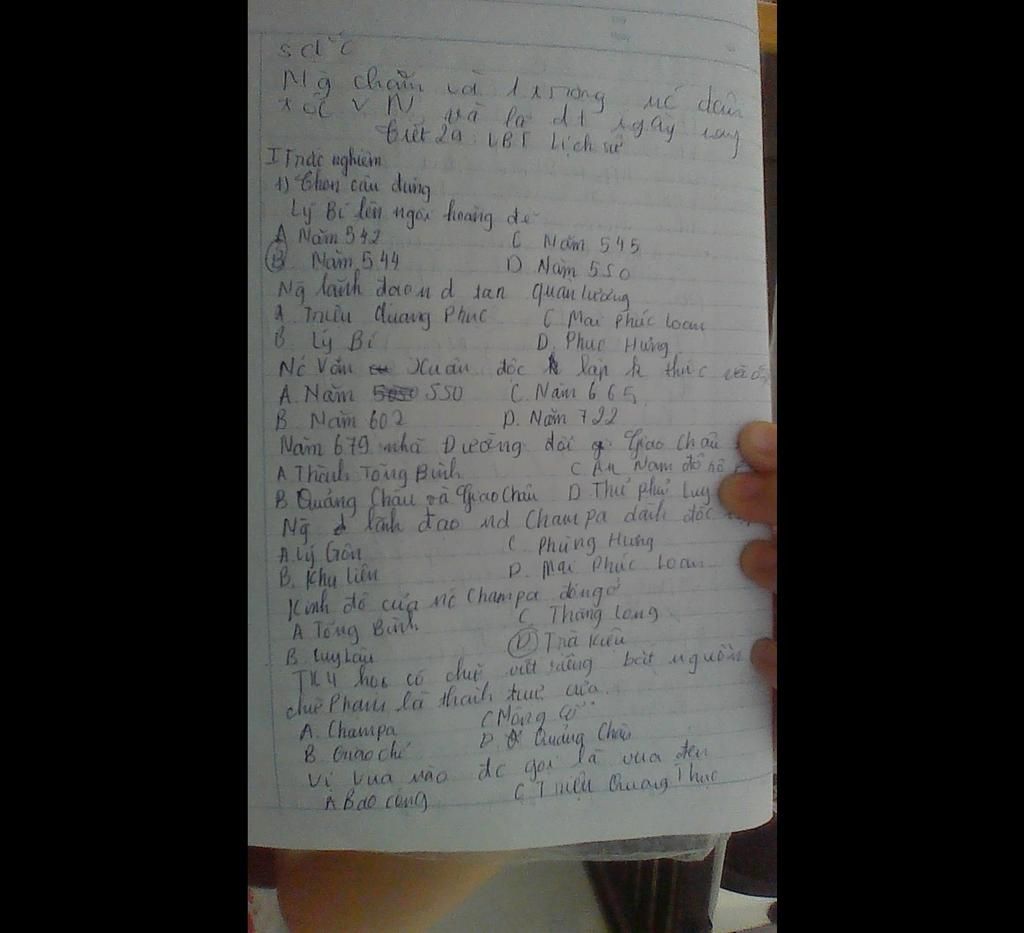 sắc
Ng chăm và 1 trong nc dân
tộc VN và là dt ngày nay
Tiết 29: LBT Lịch sử
I Trắc nghiệm
1) Chọn câu đúng
Lý Bí lên ngôi hoàng đế
A Năm 542 C Năm 545
B Năm 544 D Năm 550
Ng lãnh đạo nd quân Lương
A. Triệu Quang Phục C Mai Phúc Loan
B. Lý Bí D. Phục Hưng
Nc Vắn Xuân độc lập k thúc
A. Năm 550 C. Năm 665
B Năm 602 D. Năm 722
Năm 679 nhà Đường đổi Giao Châu
A Thành Tống Bình C. An Nam đô hộ
B Quảng Châu và Giao Châu D. Thứ phủ Luy
Ng lãnh đạo nd Champa dành độc
A. Lý Gôn C. Phùng Hưng
B. Khu Liên D. Mai Phúc Loan
Kinh đô của nc Champa đóng ở
A Tống Bình C. Thăng Long
B. Luy Lâu D Trà Kiệu
TK4 học có chữ viết riêng bắt nguồn
chữ Phạn là thành tựu của
A. Champa C Mông Cổ
B. Giao chỉ D. Quảng Châu
Vị vua nào đc gọi là vua đen
A Bao công C Triệu Quang Phục